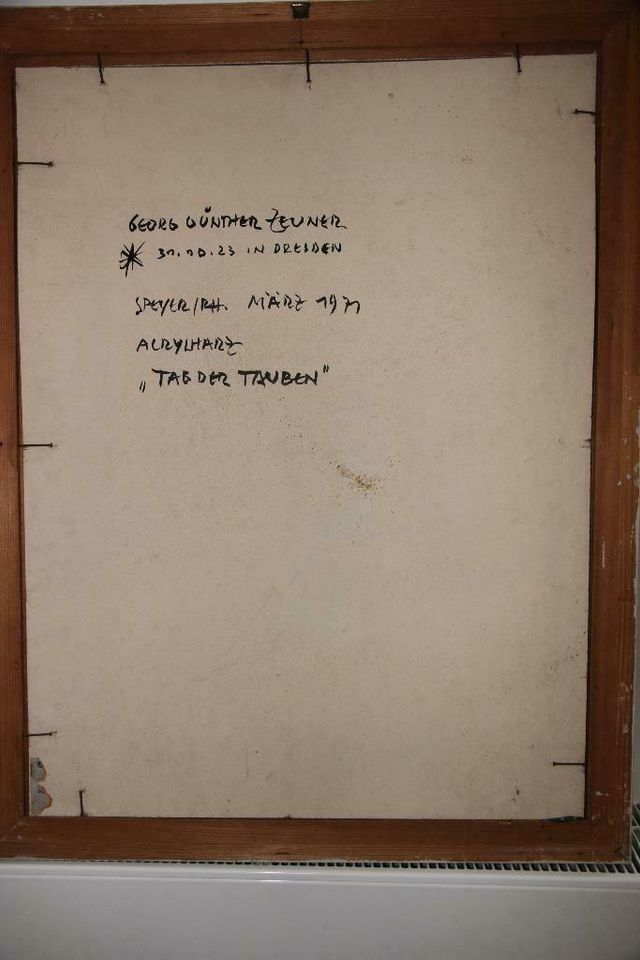 GEORG GÜNTHER ZEUNER
* 31.10.23 IN DRESDEN
SPEYER/RH. MÄRZ 1971
ACRYLHARZ
„TAG DER TAUBEN"